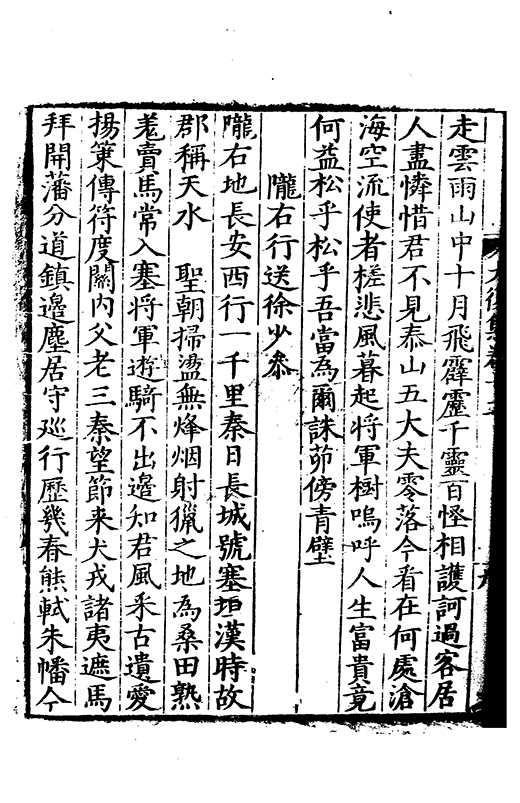 走雲雨山中十月飛霹靂千靈百怪相護訶過客居
人盡憐惜君不見泰山五大夫零落今看在何處滄
海空流使者槎悲風暮起將軍樹嗚呼人生富貴竟
何益松乎松乎吾當為爾誅茆傍青壁
隴右行送徐少叅
隴右地長安西行一千里秦日長城號塞垣漢時故
郡稱天水 聖朝掃盪無烽烟射獵之地為桑田熟
羗賣馬常入塞將軍遊騎不出邊知君風采古遺愛
揚䇿傳符度關內父老三秦望節来犬戎諸夷遮馬
拜開藩分道鎮邊塵居守巡行歷幾春熊軾朱幡今